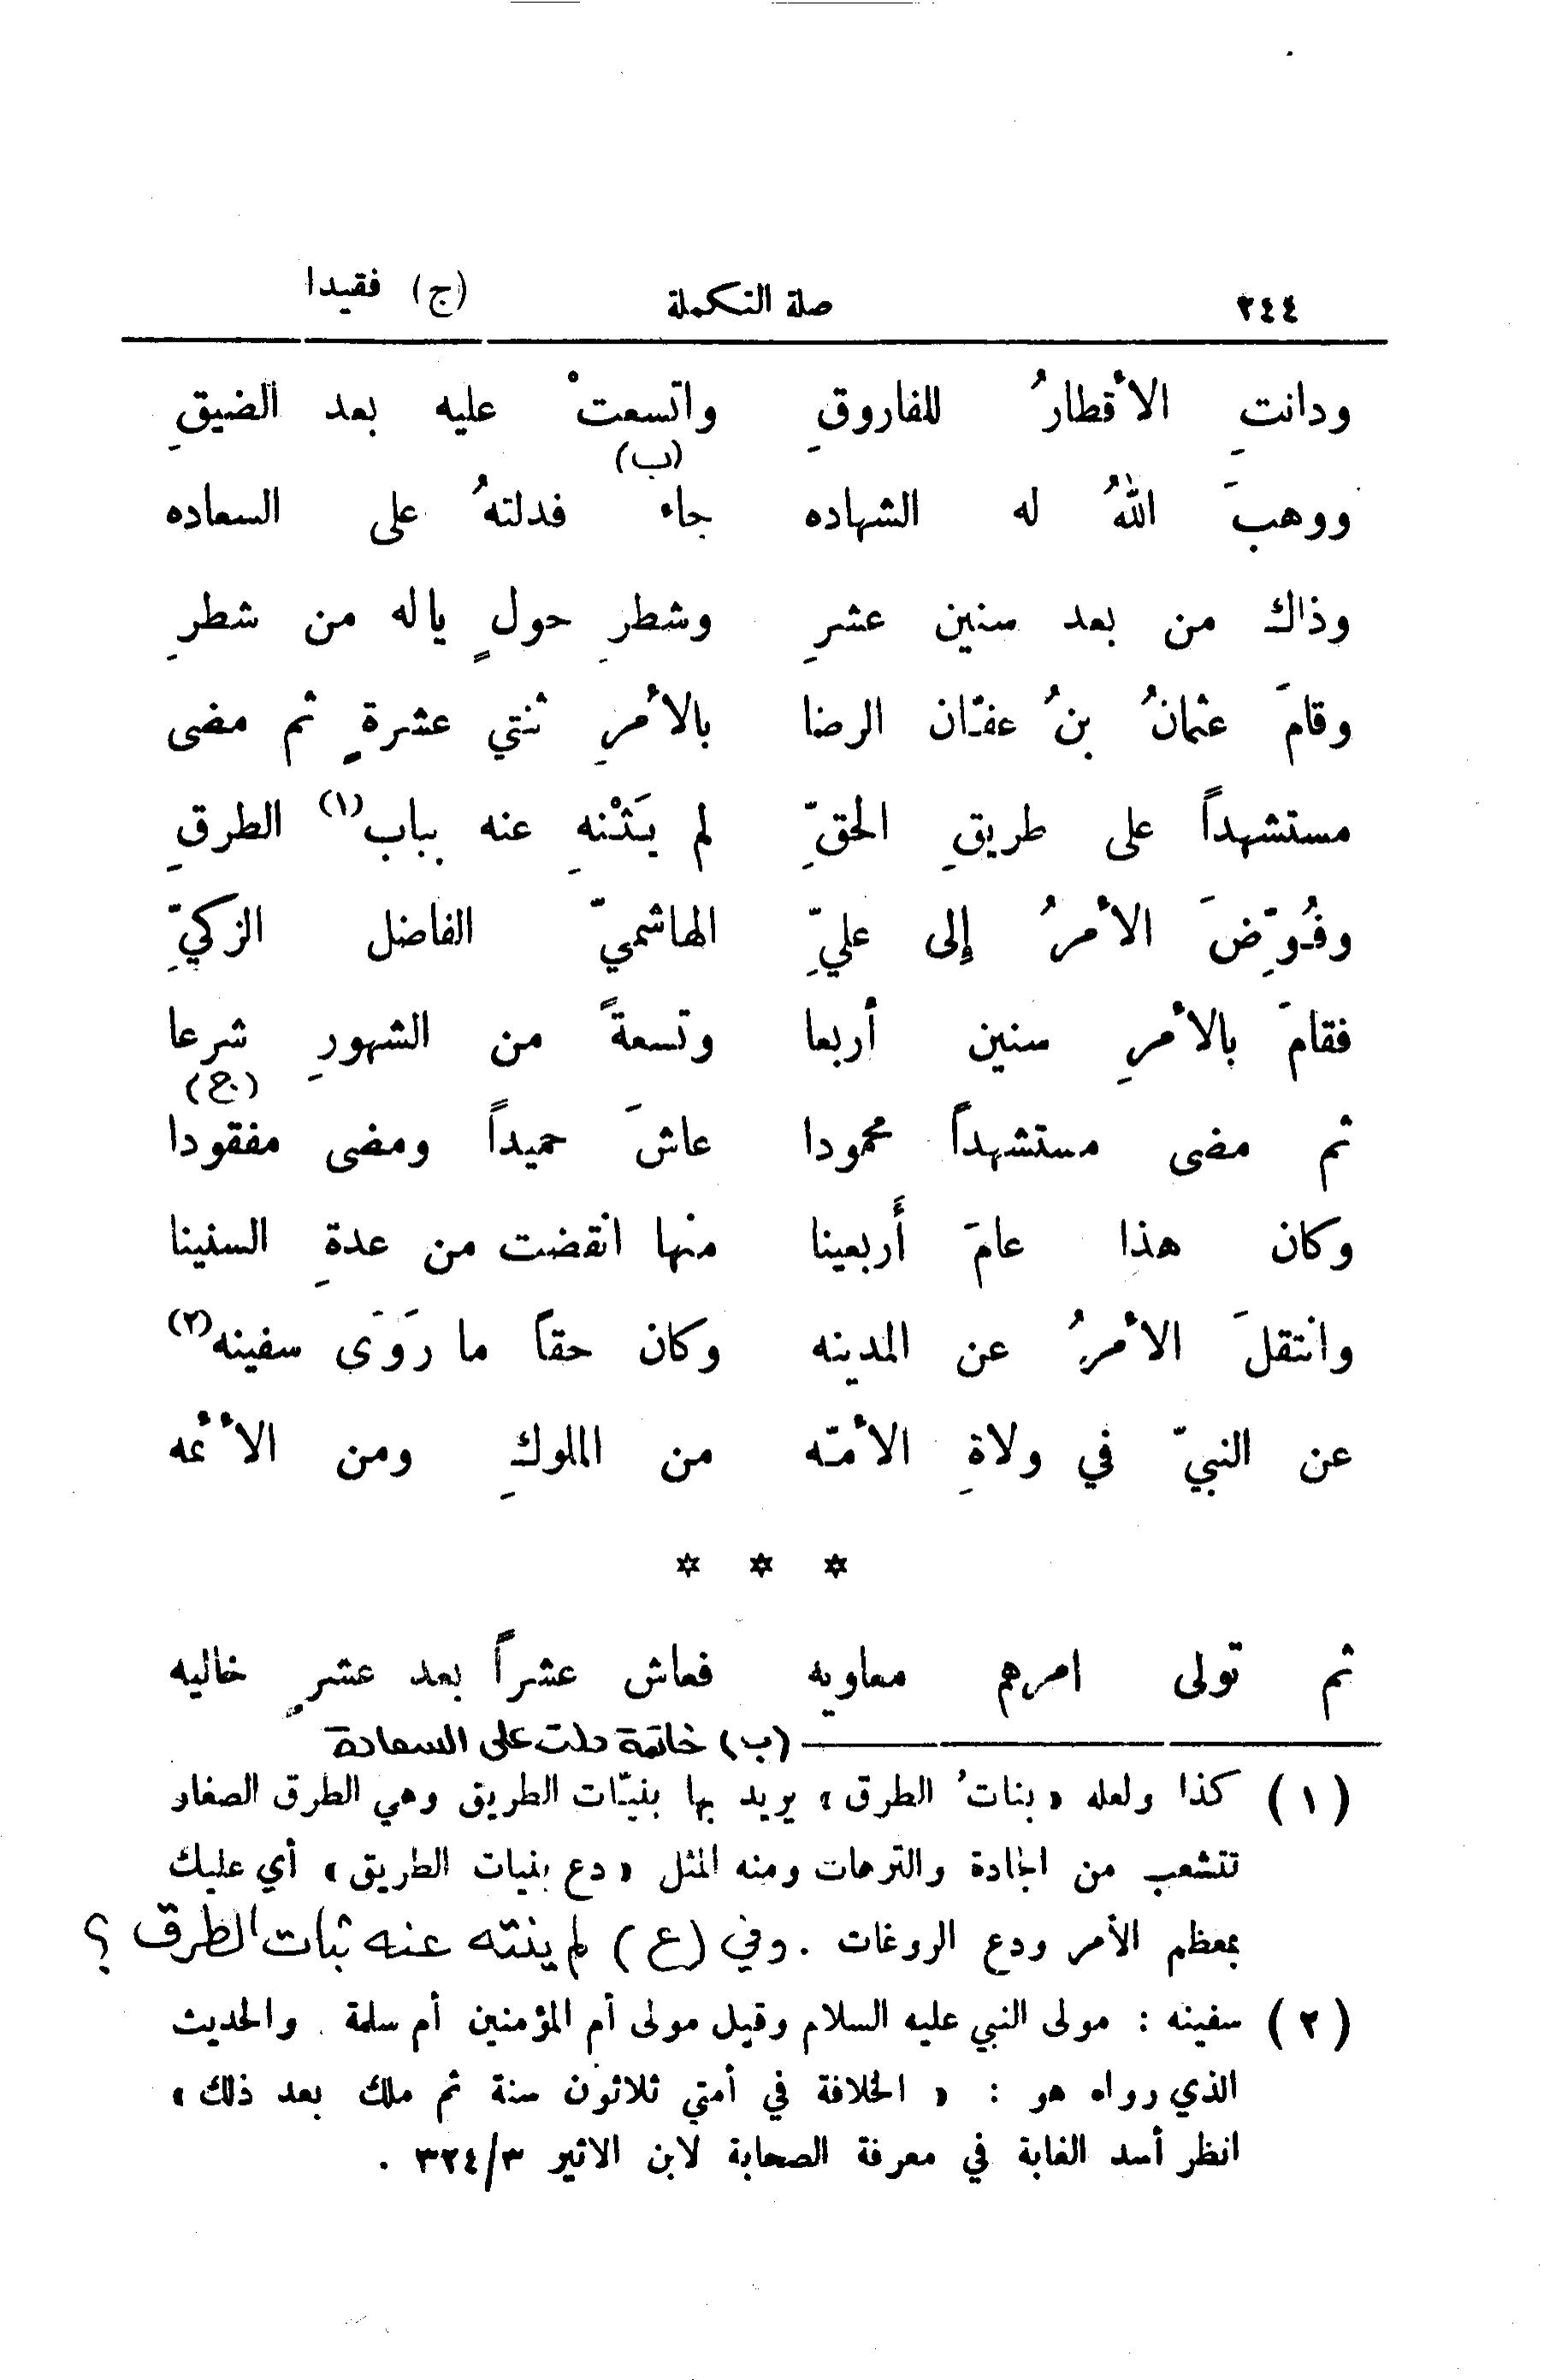 ٢٤٤ صلة التكملة (ج) فقيدا
ودانتِ الأقطارُ للفاروقِ واتسعتْ عليه بعد الضيقِ
(ب)
ووهبَ اللهُ له الشهاده جاء فدلتهُ على السعاده
وذاك من بعد سنين عشرِ وشطرِ حولٍ ياله من شطرِ
وقامَ عثمانُ بنُ عفّان الرضا بالأمرِ ثنتي عشرةٍ ثم مضى
مستشهداً على طريقِ الحقِّ لم يَثْنهِ عنه بباب(١) الطرقِ
وفُوِّضَ الأمرُ إلى عليِّ الهاشميِّ الفاضل الزكيِّ
فقامَ بالأمرِ سنين أربعا وتسعةً من الشهورِ شرعا
(ج)
ثم مضى مستشهداً محمودا عاشَ حميداً ومضى مفقودا
وكان هذا عامَ أَربعينا منها انقضت من عدةِ السنينا
وانتقلَ الأمرُ عن المدينه وكان حقاً ما رَوَى سفينه(٢)
عن النبيّ في ولاةِ الأمّه من الملوكِ ومن الأئمه
* * *
ثم تولى امرهم معاويه فعاش عشراً بعد عشرٍ خاليه
(ب) خاتمة دلت على السعادة
(١) كذا ولعله «بناتُ الطرق» يريد بها بنيّات الطريق وهي الطرق الصغار
تتشعب من الجادة والترهات ومنه المثل «دع بنيات الطريق» أي عليك
بمعظم الأمر ودع الروغات . وفي (ع) لم ينته عنه ثبات الطرق ؟
(٢) سفينه : مولى النبي عليه السلام وقيل مولى أم المؤمنين أم سلمة . والحديث
الذي رواه هو : « الخلافة في أمتي ثلاثون سنة ثم ملك بعد ذلك»
انظر أسد الغابة في معرفة الصحابة لابن الاثير ٣٢٤/٣ .